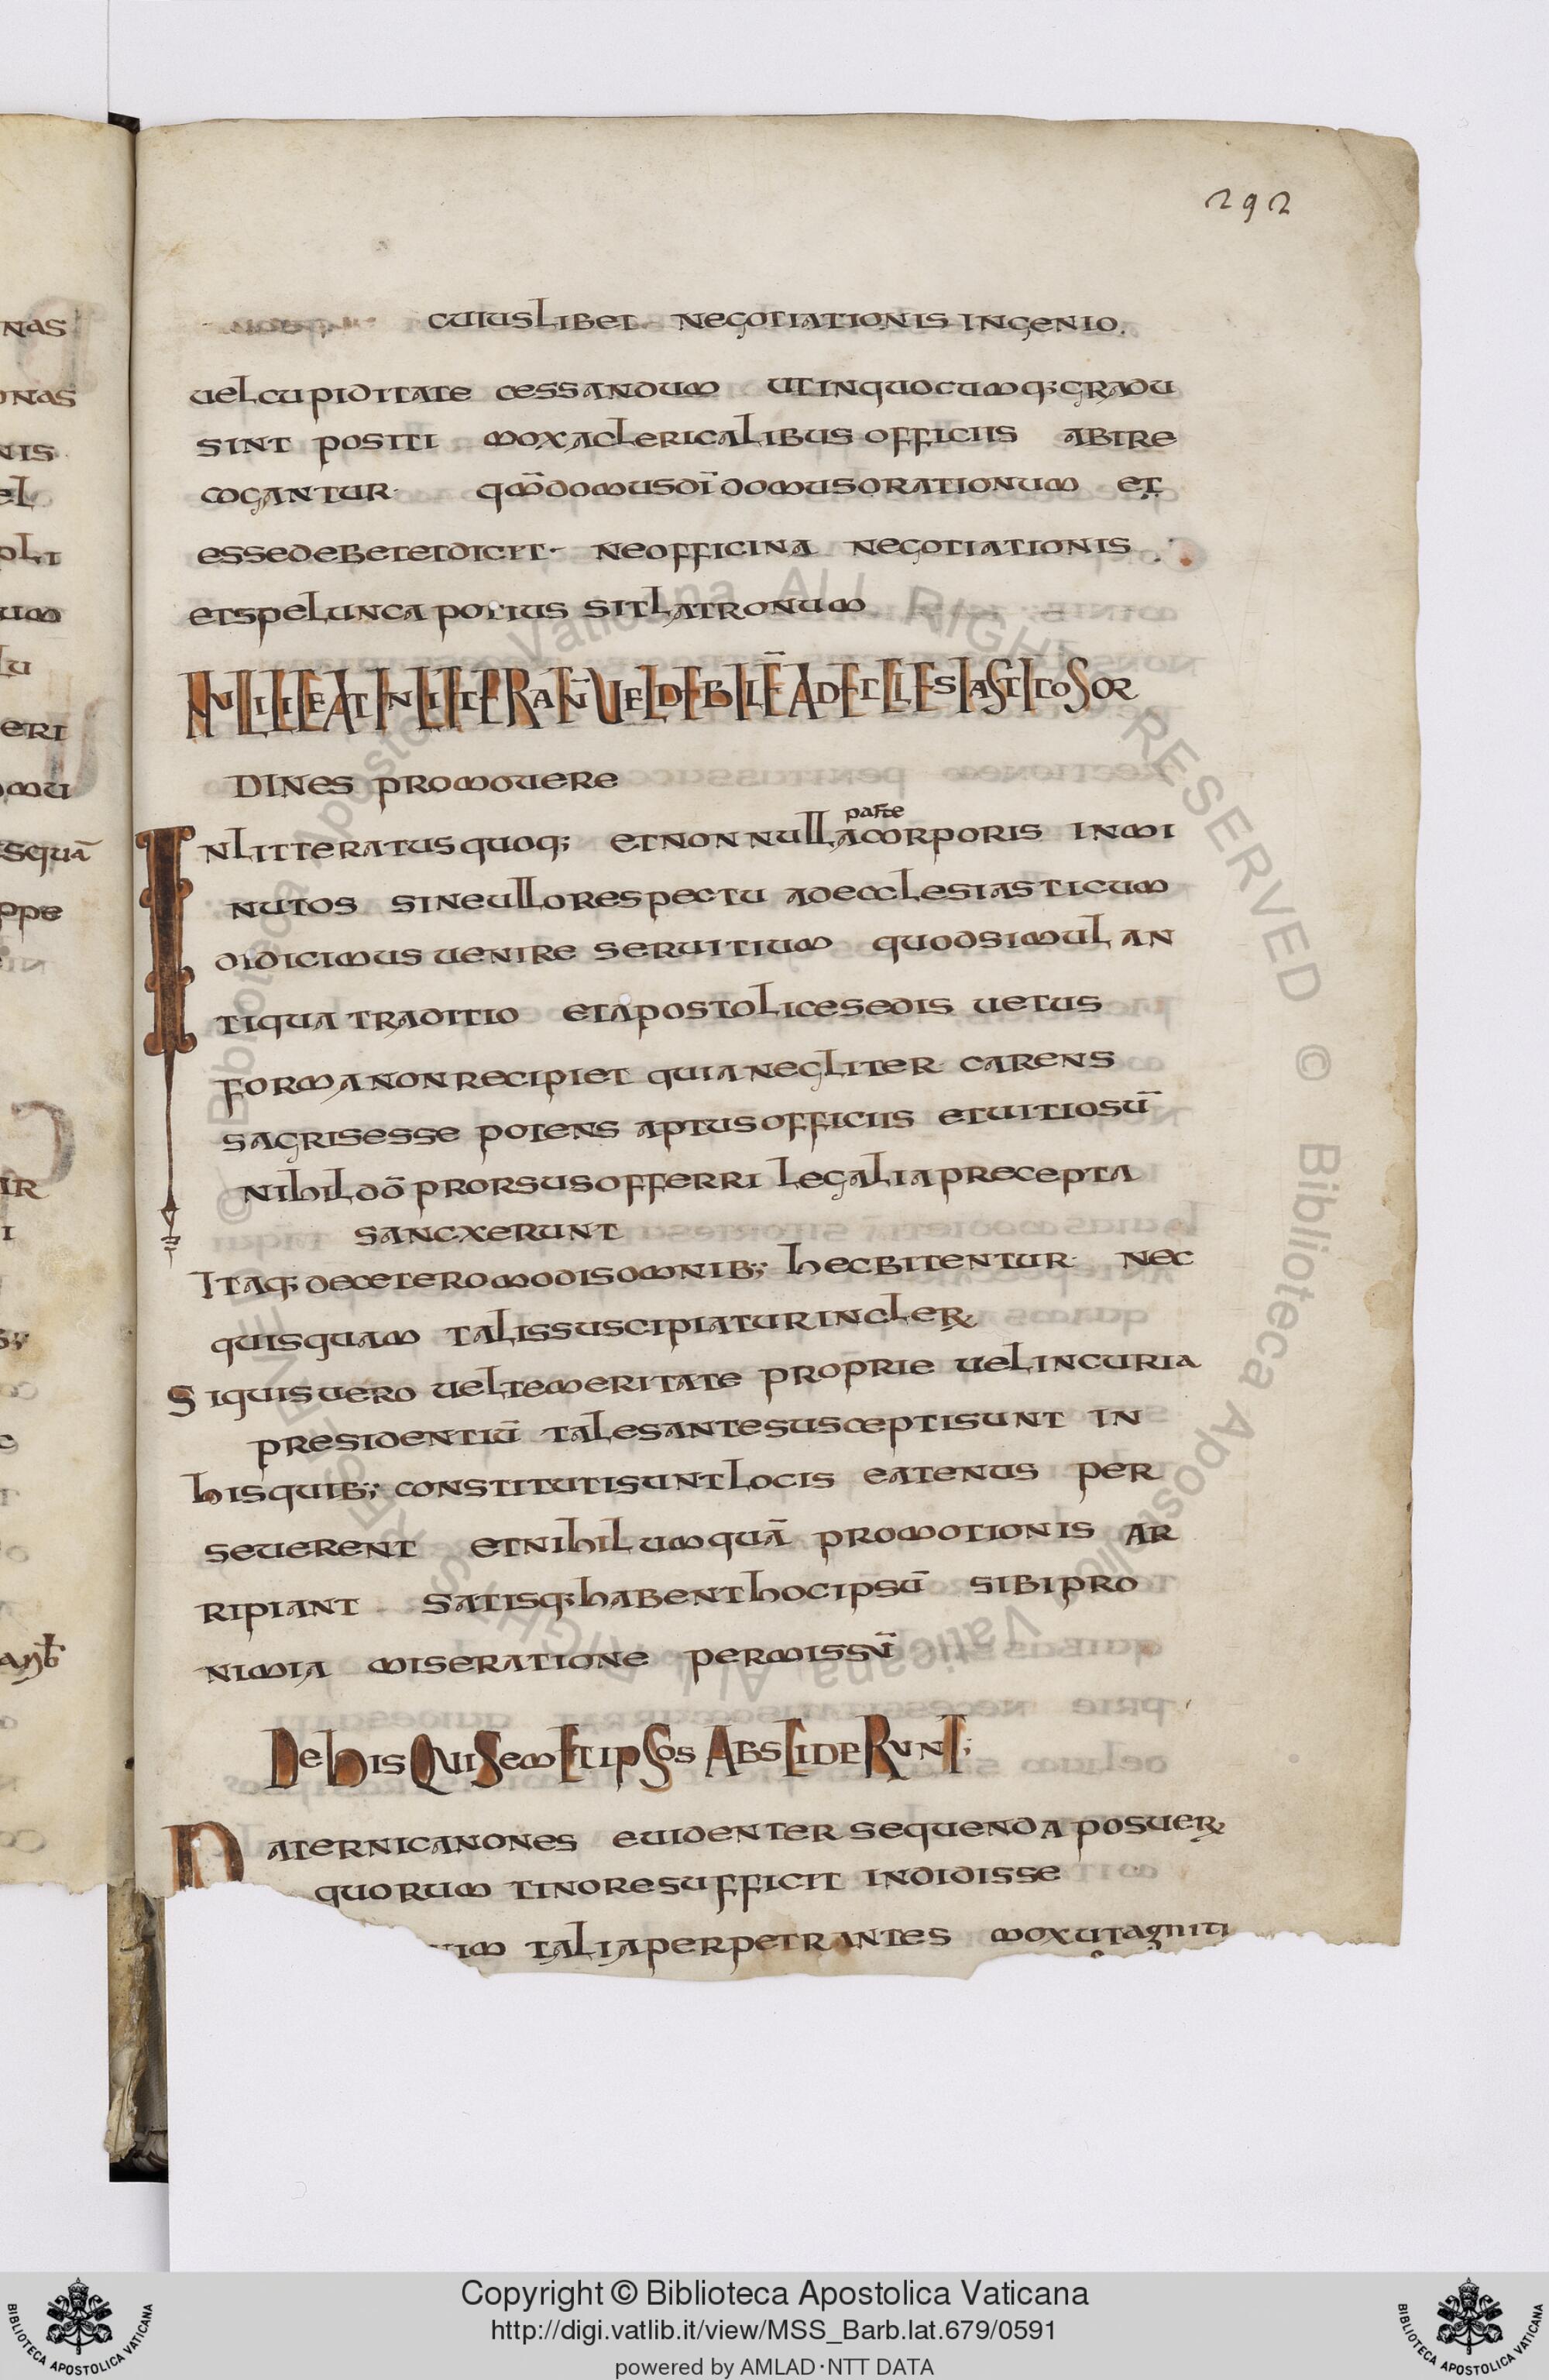 292
cuiuslibet negotiationis ingenio.
uelcupiditate cessandum utinquocumq; gradu
sint positi mox aclericalibus officiis abire
cogantur. qm̄ domus dī domus orationum et
esse debet et dicit. ne officina negotiationis
et spelunca potius sit latronum
dines promouere
Inlitteratus quoq; et non nulla parte corporis inmi
nutos sine ullo respectu ad ecclesiasticum
didicimus uenire seruitium quod simul an
tiqua traditio et apostolice sedis uetus
forma non recipiet quia necgliter carens
sacris esse potens aptus officiis et uitiosū
nihil dō prorsus offerri legalia precepta
sancxerunt
Itaq; de cetero modis omnib; hec bitentur nec
quisquam talis suscipiatur in cler
Si quis uero uel temeritate proprie uel incuria
presidentiū tales ante suscepti sunt in
his quib; constituti sunt locis eatenus per
seuerent et nihil umquā promotionis ar
ripiant satisq; habent hoc ipsū sibi pro
nimia miseratione permissū
De his qui semet ipsos absciderunt;
Paterni canones euidenter sequenda posuer
quorum tinore sufficit indidisse
talia perpetrantes mox ut agniti
Copyright © Biblioteca Apostolica Vaticana
http://digi.vatlib.it/view/MSS_Barb.lat.679/0591
powered by AMLAD·NTT DATA
BIBLIOTECA APOSTOLICA VATICANA
BIBLIOTECA APOSTOLICA VATICANA